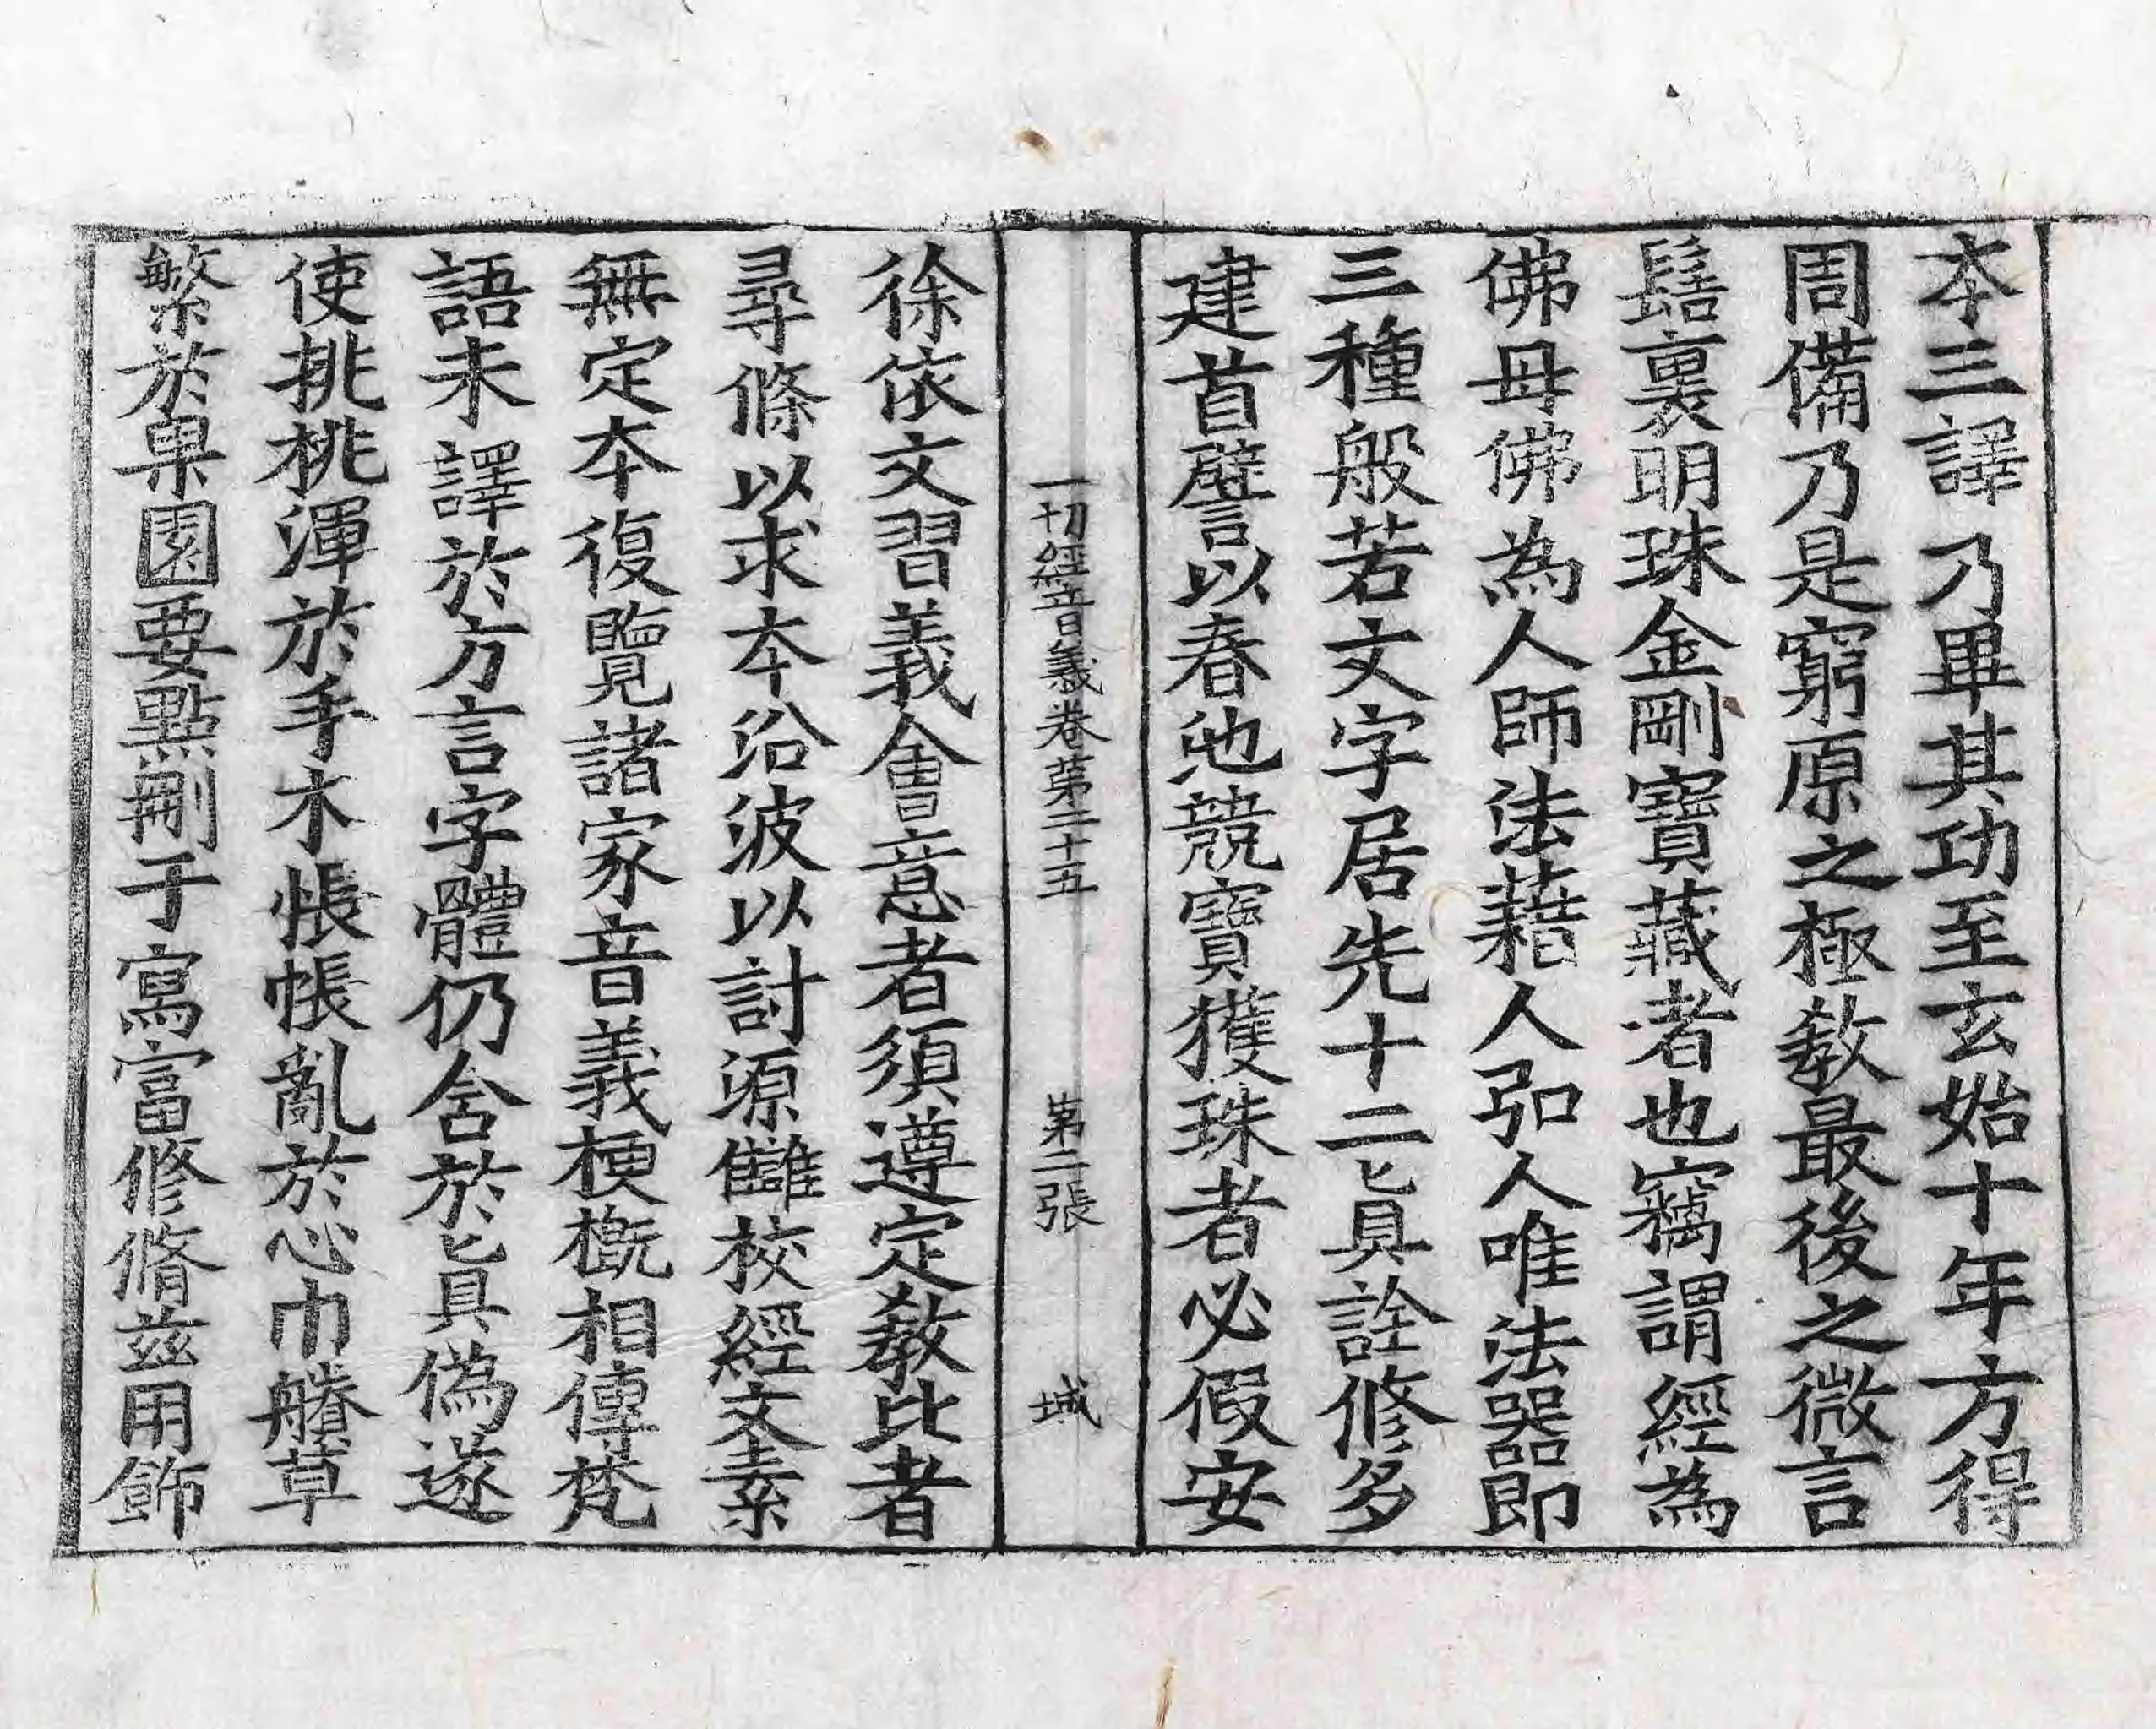 夲三譯乃畢其功至玄始十年方得
周備乃是窮原之極教最後之微言
髻裏明珠金剛寶藏者也竊謂經為
佛母佛為人師法藉人弘人唯法器即
三種般若文字居先十二𠤎具詮修多
建首譬以春池競寶獲珠者必假安
一切經音義卷第二十五 第二張 城
徐依文習義會意者須遵定教比者
尋條以求夲沿波以討源讎挍經文素
無定夲復覽諸家音義梗概相傳梵
語未譯於方言字體仍含於𠤎具偽遂
使挑桃渾於手木悵帳亂於心巾艜草
繁於果園要點刪于寫富修脩茲用飾